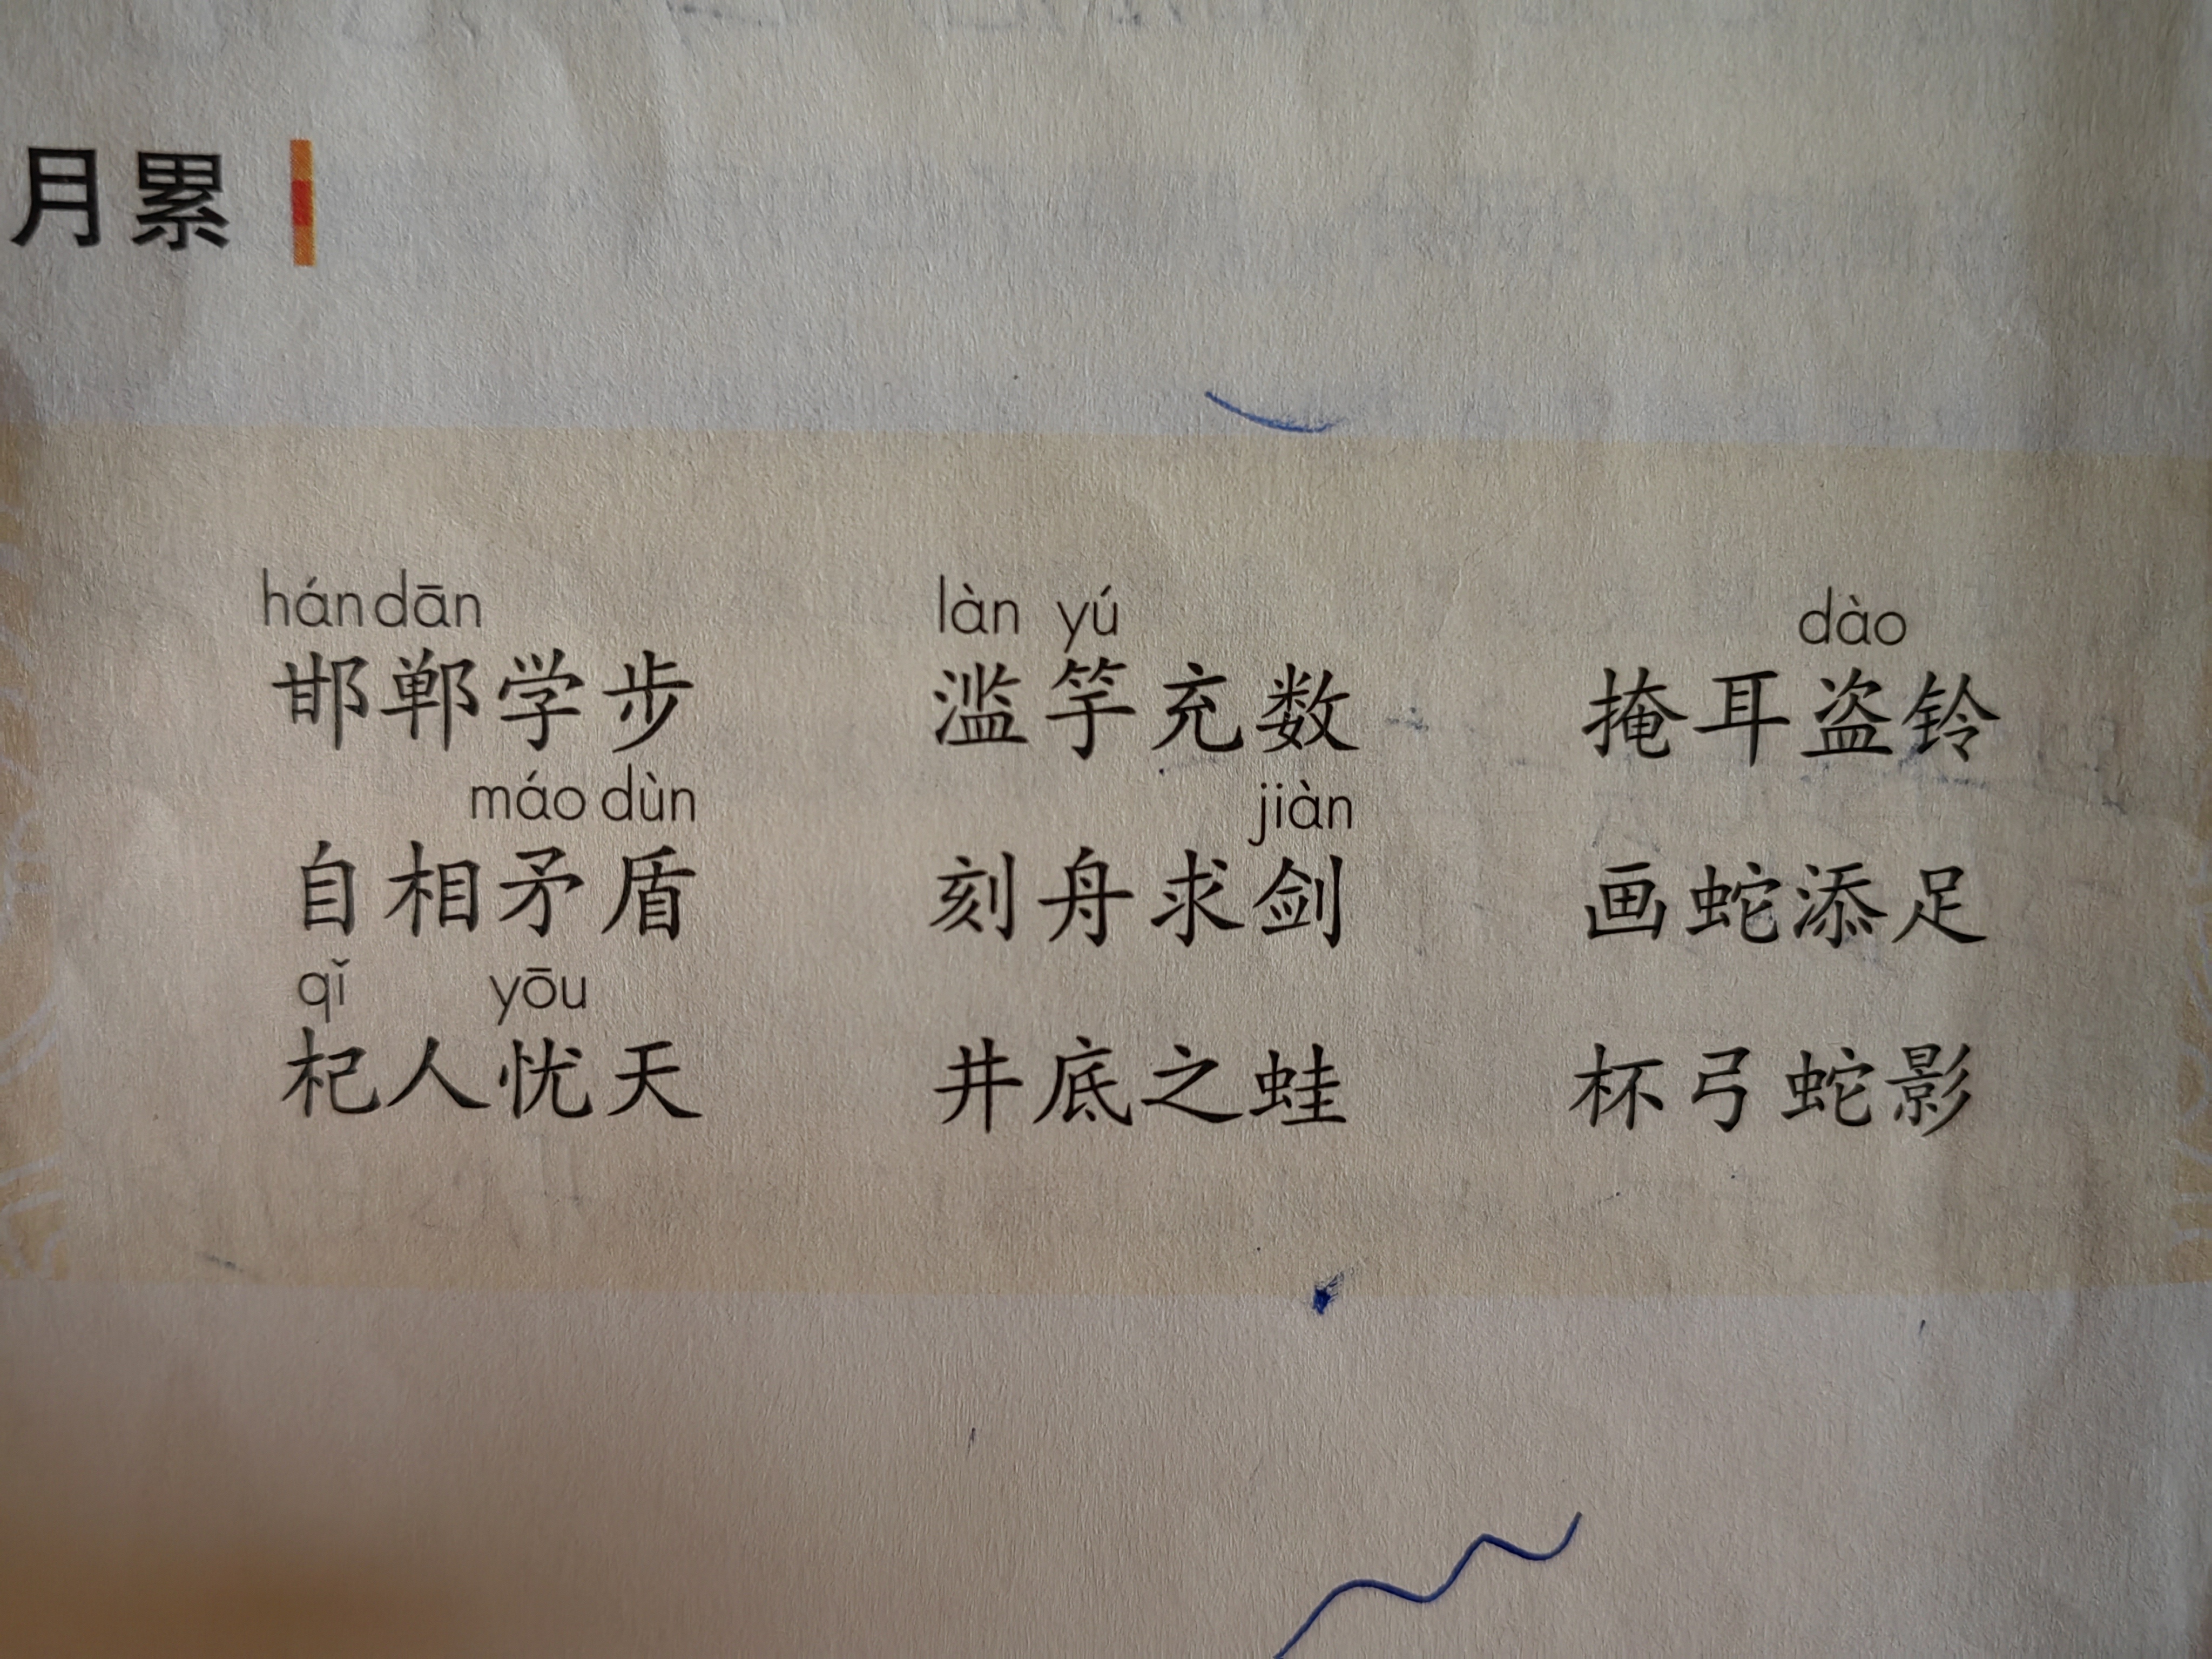 月累
hán dān làn yú dào
邯郸学步 滥竽充数 掩耳盗铃
máo dùn jiàn
自相矛盾 刻舟求剑 画蛇添足
qǐ yōu
杞人忧天 井底之蛙 杯弓蛇影